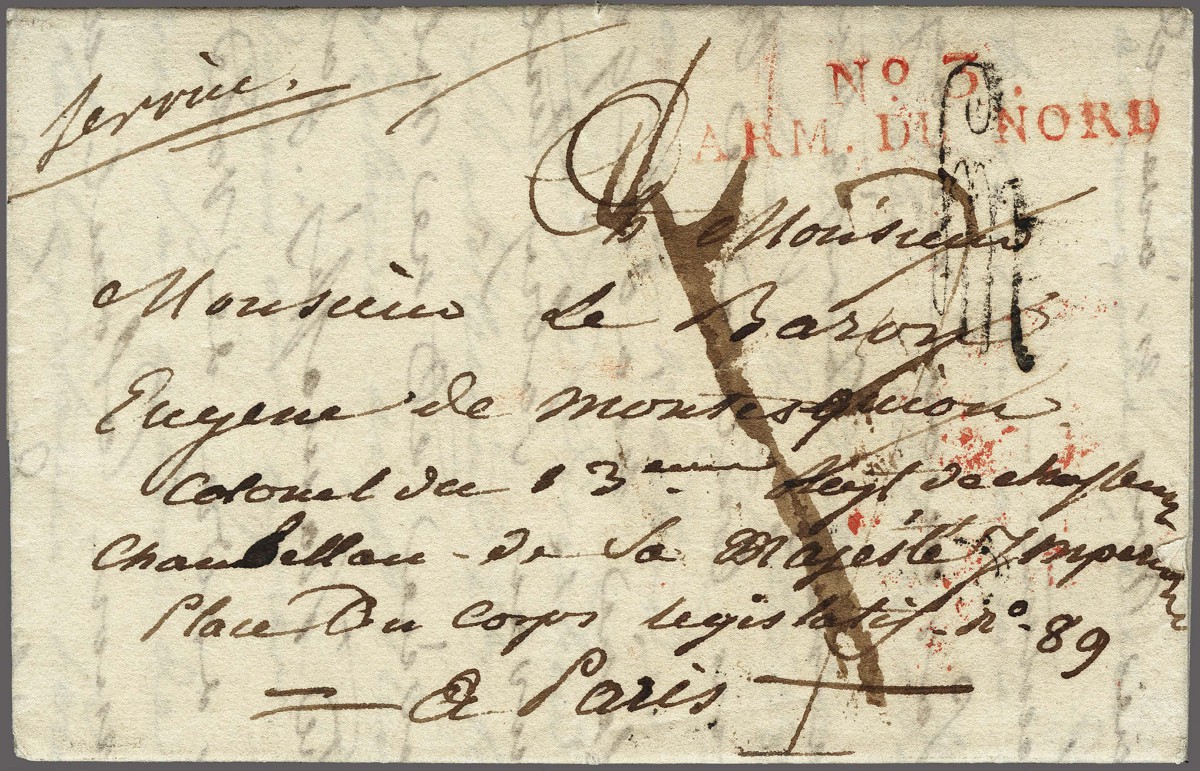 Service.
No. 3.
ARM. DU NORD
A Monsieur
Monsieur Le Baron
Eugene de Montesquiou
Colonel du 13eme Regt de chasseurs
Chambellan de Sa Majesté Imperiale
Place Du Corps legislatif no. 89
= a Paris